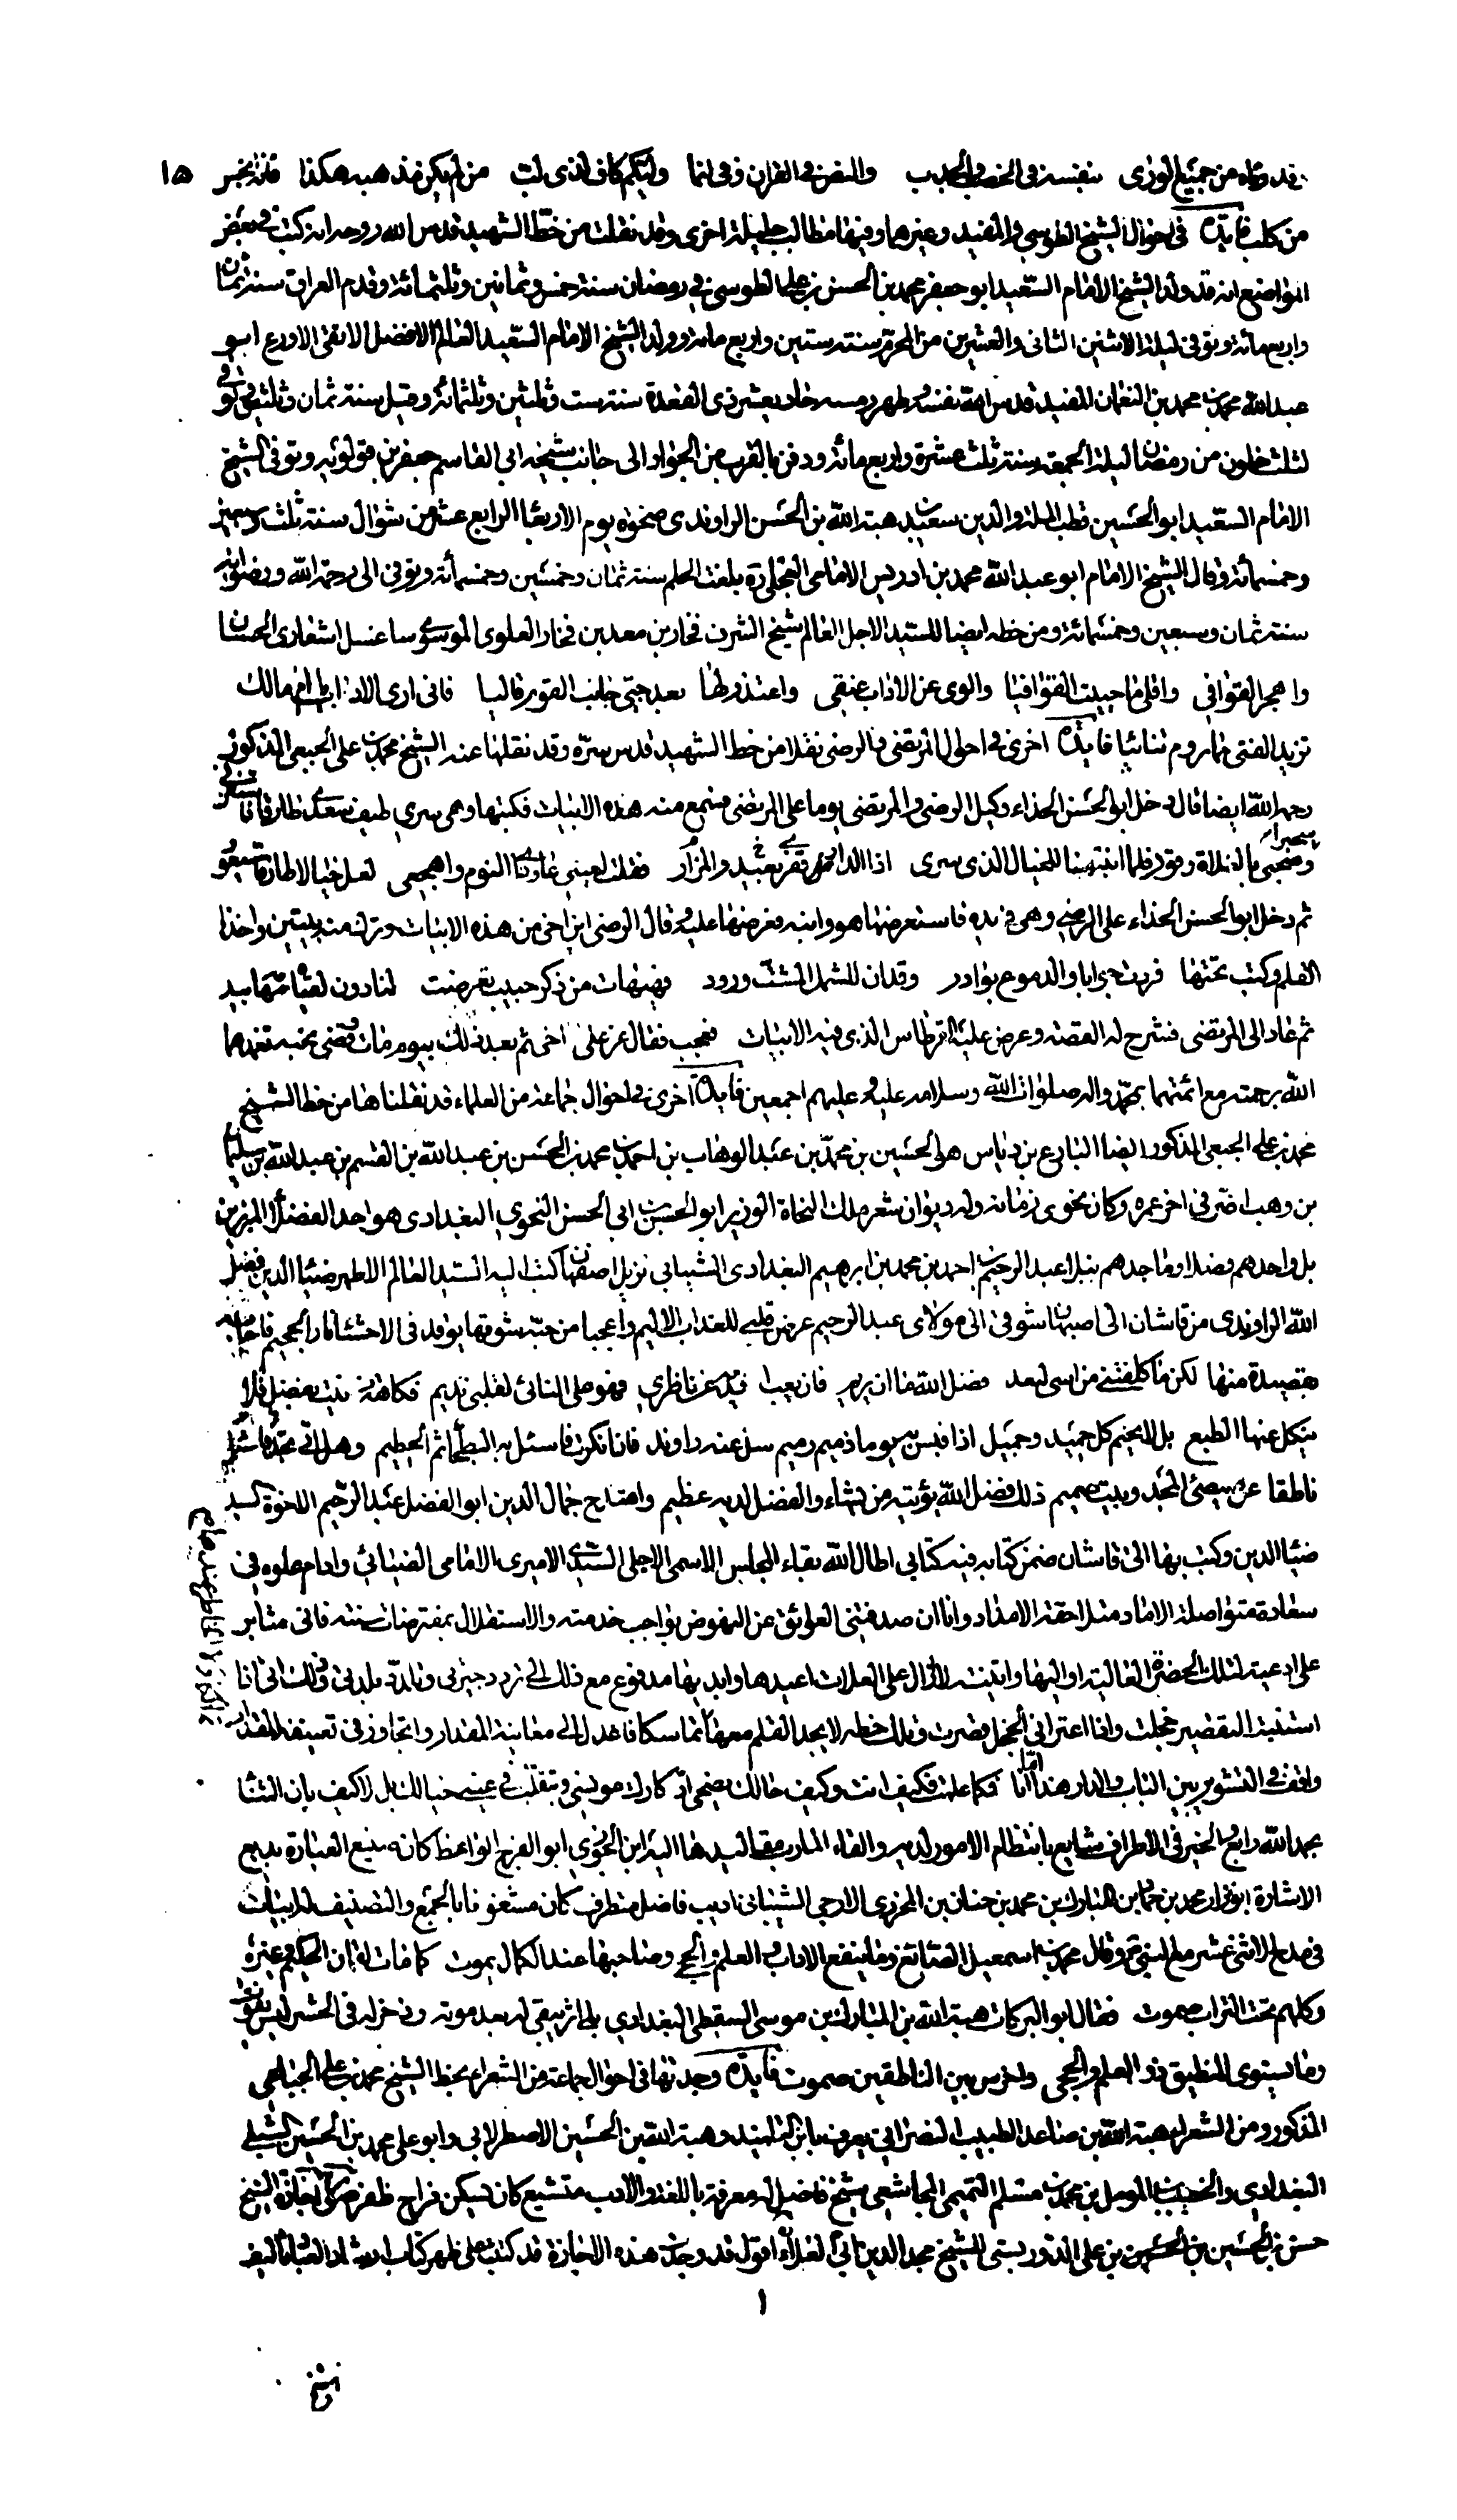 قد وقاه من جميع الورى بنفسه في الخصب والجدب والنص في القران في انما وليكم كاف لذي لب من لم يكن مذهبه هكذا فانه نجس ١٥
من كلب فايدة في احوال الشيخ الطوسي والمفيد وغيرهما وفيها مطالب جليلة اخرى وقد نقلت من خط الشهيد قدس الله روحه انه كتب في بعض
المواضع انه قد ولد الشيخ الامام السعيد ابو جعفر محمد بن الحسن بن علي الطوسي في رمضان سنة خمس وثمانين وثلثمائة وقدم العراق سنة ثمان
واربعمائة وتوفي ليلة الاثنين الثاني والعشرين من المحرم سنة ستين واربع مائة وولد الشيخ الامام السعيد العالم الافضل الاتقى الاورع ابو
عبدالله محمد بن محمد بن النعمان المفيد قدس الله نفسه وطهر رمسه حادي عشر ذي القعدة سنة ست وثلثين وثلثمائة وقيل سنة ثمان وثلثين وتوفي
لثلث خلون من رمضان ليلة الجمعة سنة ثلث عشرة واربع مائة ودفن بالقرب من الجواد الى جانب شيخه ابي القاسم جعفر بن قولويه وتوفي الشيخ
الامام السعيد ابو الحسين قطب الملة والدين سعيد بن هبة الله بن الحسن الراوندي ضحوة يوم الاربعاء الرابع عشر من شوال سنة ثلث وسبعين
وخمسمائة وقال الشيخ الامام ابو عبد الله محمد بن ادريس الامامي العجلي ره بلغت الحلم سنة ثمان وخمسين وخمسمائة وتوفي الى رحمة الله ورضوانه
سنة ثمان وسبعين وخمسمائة ومن خطه ايضا للسيد الاجل العالم شيخ الشرف فخار بن معد بن فخار العلوي الموسوي ساغسل اشعاري الحسان
واهجر القوافي واقلي ما حييت القوافيا والوي عن الاداب عنقي واعتذر لها بعد حتى قاليا فاني ارى الاداب يا ام مالك
تزيد الفتى مما يروم تنائيا فايدة اخرى في احوال المرتضى والرضي نقلا من خط الشهيد قدس سره وقد نقلها عنه الشيخ محمد بن علي الجبعي المذكور
رحمه الله ايضا قال دخل ابو الحسن الحذاء وكيل الرضي والمرتضى يوما على المرتضى فسمع منه هذه الابيات فكتبها وهي سرى طيف سعدى طارقا فاستفزني
سحيرا وصحبي بالفلاة رقود فلما انتبهنا للخيال الذي سرى اذا الدار قفر بعيد والمزار فقلت لعيني عاودي النوم واهجعي لعل خيالا طارقا سيعود
ثم دخل ابو الحسن الحذاء على الرضي وهي في يده فاستعرضها هو وابنه فعرضها عليه وقال الرضي اين اخي من هذه الابيات وترك منه بيتين واخذ
القلم وكتب تحتها فردت جوابا والدموع بوادر وقد ان للشمل المشت ورود فهيهات من ذكر حبيب تعرضت لنا دون لقياه مهامه بيد
ثم عاد الى المرتضى فشرح له القصة وعرض عليه القرطاس الذي فيه الابيات فعجب فقال عز علي اخي ثم بعد ذلك بيوم مات وقضى نحبه تغمدهما
الله برحمته مع ائمتهما بمحمد واله صلوات الله وسلامه عليه وعليهم اجمعين فايدة اخرى في احوال جماعة من العلماء قد نقلناها من خط الشيخ
محمد بن علي الجبعي المذكور ايضا البارع بن دباس هو الحسين بن محمد بن عبد الوهاب بن احمد بن محمد بن الحسن بن عبيد الله بن القسم بن عبد الله بن سليمان
بن وهب اضر في اخر عمره وكان نحوي زمانه وله ديوان شعر ملك النحاة الوزير ابو الحسن بن ابي الحسن النحوي البغدادي هو احد الفضلاء المبرزين
بل واحدهم فضلا وماجدهم نبلا عبد الرحيم بن احمد بن محمد بن ابرهيم البغدادي الشيباني نزيل اصفهان كتب اليه السيد العالم الاطهر ضياء الدين فضل
الله الراوندي من قاشان الى اصبهان شوقي الى مولاي عبد الرحيم عرض قلبي للعذاب الاليم واعجبا من جنة شوقها يوقد في الاحشاء نار الجحيم فاجابه
بقصيدة منها لكن ما كلفتني من اسى لبعد فضل الله ما ان يريم فان يغب عن ناظري فهو على النائي لقلبي نديم
ينكل عنها الطبع بل لا يختم كل حميد وجميل اذا قيس به يوما ذميم رميم سل عنه راوند فان انكرت فاسئل به البطحاء ثم الحطيم وهل اتى
ناطقا عن بيضتي المجد وبيت صميم ذلك فضل الله يؤتيه من يشاء والفضل لديه عظيم وامتدح جمال الدين ابو الفضل عبد الرحيم الاخوة السيد
ضياء الدين وكتب بها الى قاشان ضمن كتابه فيه كتابي اطال الله بقاء المجلس الاسمى الاجلي السيدي الاميري الامامي الضيائي وادام علوه في
سعادة متواصلة الامداد متلاحقة الامداد وانا ان صدفتني العوائق عن النهوض بواجب خدمته والاستقلال بمفترضات سنته فاني مثابر
على ادعية لتلك الحضرة العالية اواليها واثنية لا ازال على العلات اعيدها وابديها مدفوع مع ذلك الى تردد وتلدد يلد بي وذلك اني انا
استنبذ التقصير خجلت وانا اعتراني الخجل قصرت وتلك خطة لا يجد القلم معها تماسكا
واقف في التشوير بين الباب والدار هذا انا فكما علمت فكيف انت وكيف حالك
بحمد الله رايع والخبر في الاطراف شايع بانتظام الامور لديه والقاء المارب مقاليدها اليه ابن الجوزي ابو الفرج الواعظ كانه منيع العبارة بديع
الاشارة ابو نزار محمد بن المبارك بن محمد بن الشيباني اديب فاضل متظرف كان مشغوفا بالجمع والتصنيف له ابيات
في مدح الاثني عشر وقال محمد بن اسمعيل الصائغ وما ينفع الاداب والعلم والحجى وصاحبها عند الكمال يموت كما مات لقمان الحكيم وغيره
وكلهم تحت التراب صموت فقال ابو البركات هبة الله بن المبارك بن موسى السقطي البغدادي بلى اثر يبقى له بعد موته وذخر له في الحشر ليس يفوت
وما يستوي المنطيق ذو العلم والحجى واخرس بين الناطقين صموت فايدة وجدتها في احوال جماعة من الشعراء بخط الشيخ محمد بن علي الجباعي
المذكور ومن الشعراء هبة الله بن صاعد الطبيب النصراني يعرف بابن التلميذ وهبة الله بن الحسين الاصطرلابي وابو علي محمد بن الحسين الشبلي
البغدادي بن محمد بن مسلم التميمي المجاشعي شيخ فاضل له معرفة باللغة والادب متشيع كان يسكن قراح ظفر اجازة الشيخ
حسن بن الحسين بن علي الدوريستي للشيخ مجد الدين ابي العلاء اقول قد وجدت هذه الاجازة قد كتبت على ظهر كتاب
١